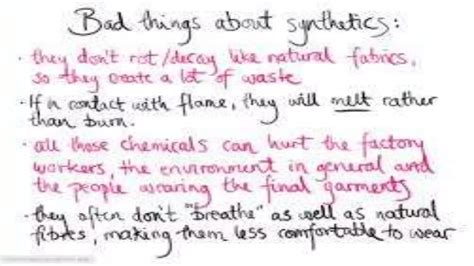 Bad things about synthetics:
· they don't rot/decay like natural fabrics,
so they create a lot of waste
· If in contact with flame, they will melt rather
than burn.
· all those chemicals can hurt the factory
workers, the environment in general and
the people wearing the final garments
· they often don't "breathe" as well as natural
fibres, making them less comfortable to wear